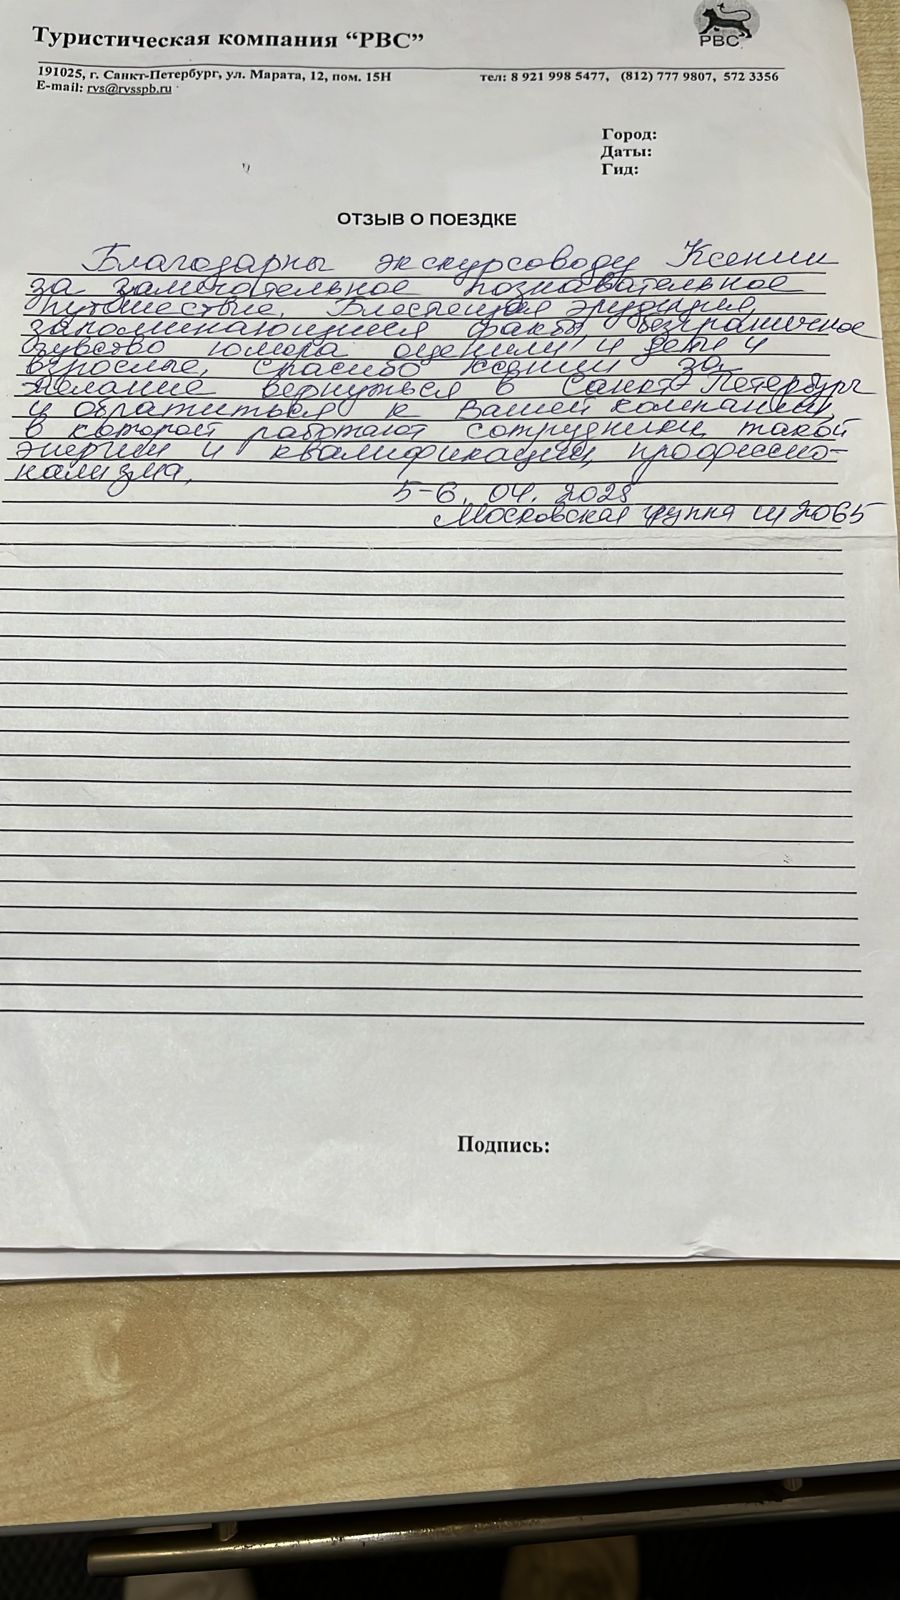 Туристическая компания “РВС”
РВС
191025, г. Санкт-Петербург, ул. Марата, 12, пом. 15Н тел: 8 921 998 5477, (812) 777 9807, 572 3356
E-mail: rvs@rvsspb.ru
Город:
Даты:
Гид:
ОТЗЫВ О ПОЕЗДКЕ
Благодарны экскурсоводу Ксении
за замечательное познавательное
путешествие. Блестящая эрудиция,
запоминающиеся факты, безграничное
чувство юмора оценили и дети и
взрослые. Спасибо Ксении за
желание вернуться в Санкт-Петербург
и обратиться к Вашей компании,
в которой работают сотрудники такой
энергии и квалификации, профессио-
нализма.
5-6. 04. 2025
Московская группа ш 2065
Подпись: